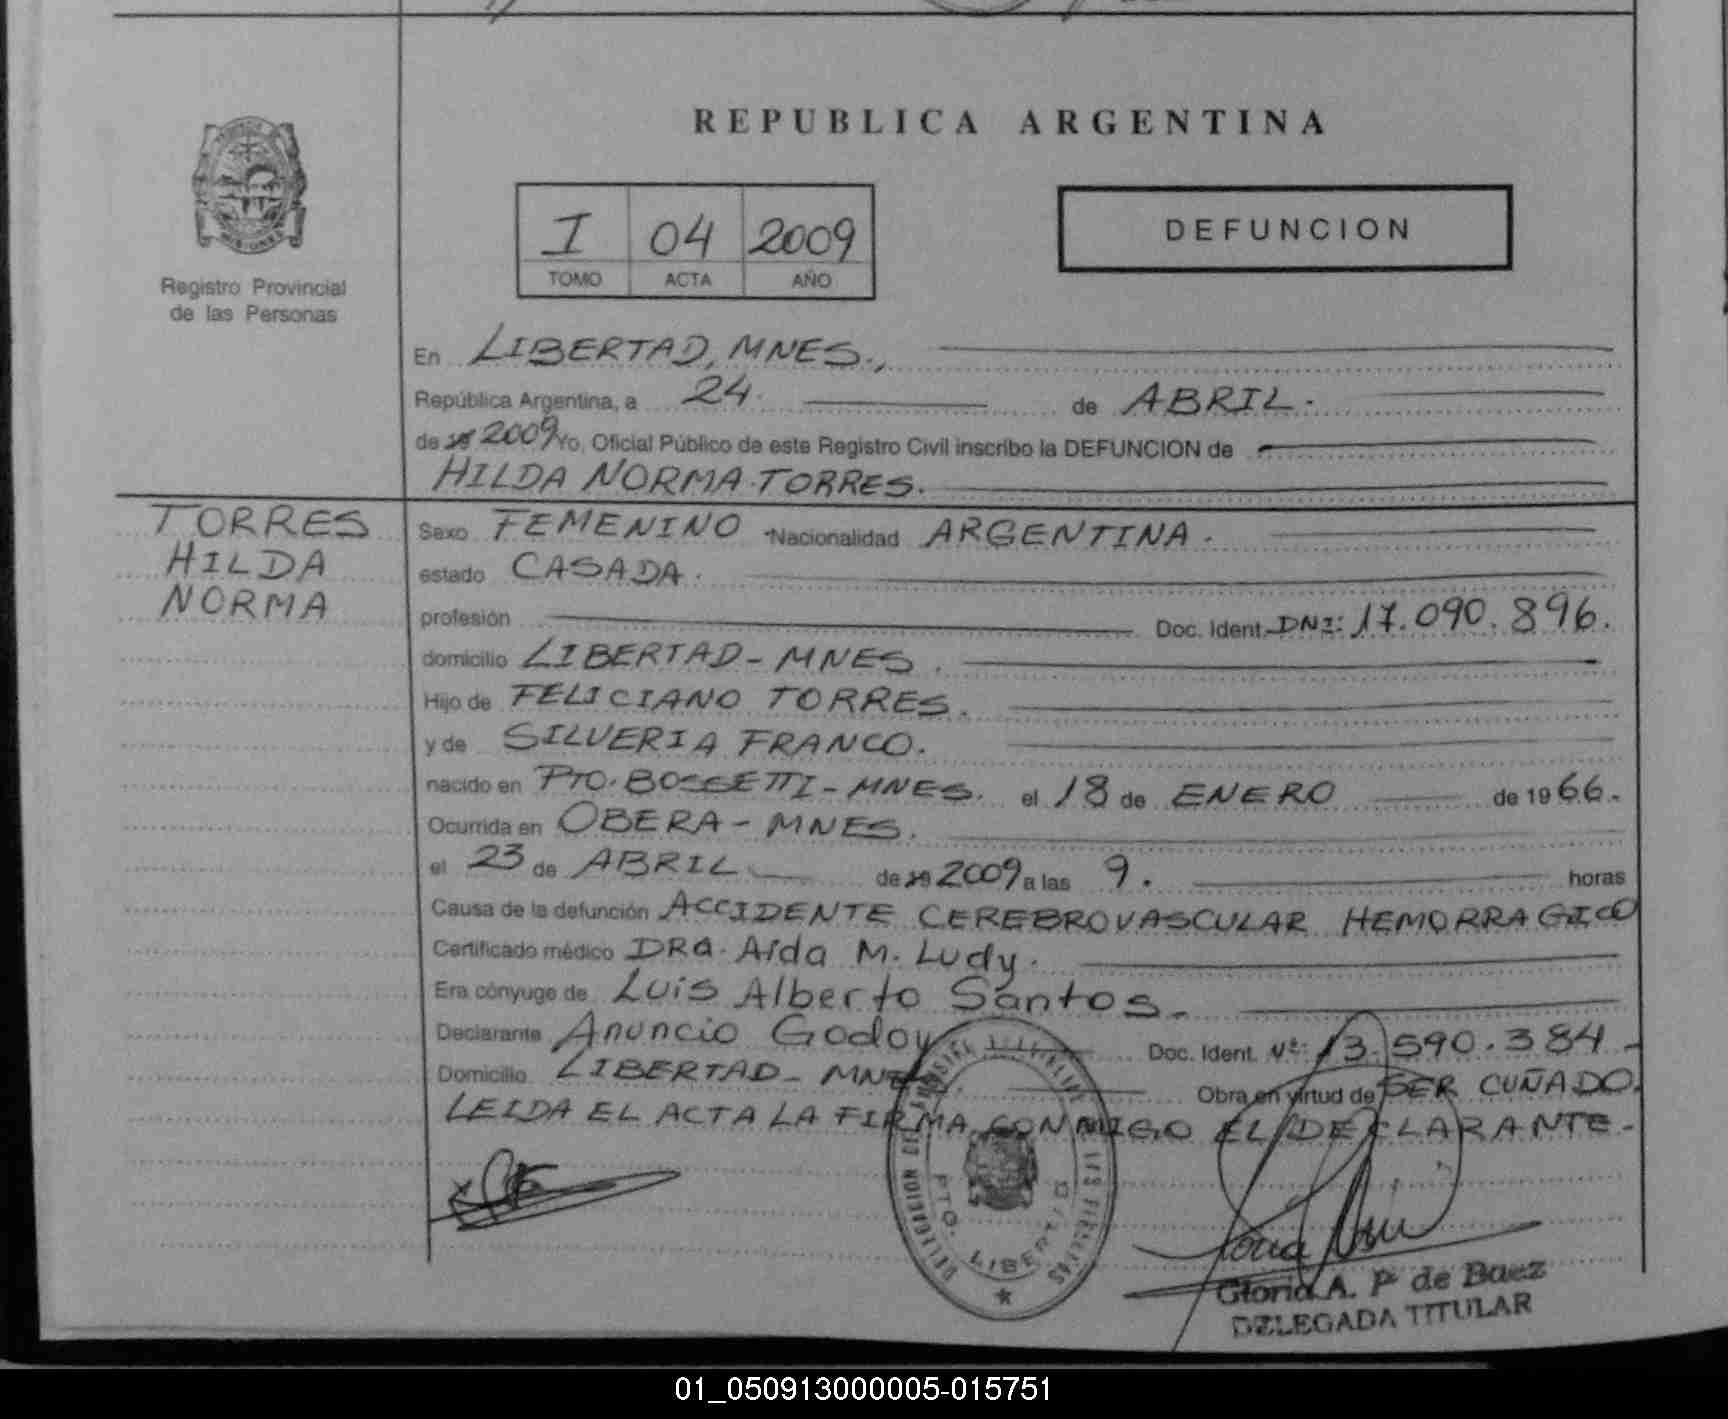 REPUBLICA ARGENTINA
I 04 2009
TOMO ACTA AÑO
DEFUNCION
MISIONES
Registro Provincial
de las Personas
En LIBERTAD, MNES.,
República Argentina, a 24. de ABRIL.
de 19 2009 Yo, Oficial Público de este Registro Civil inscribo la DEFUNCION de
HILDA NORMA TORRES.
TORRES
HILDA
NORMA
Sexo FEMENINO Nacionalidad ARGENTINA.
estado CASADA.
profesión Doc. Ident. DNI: 17.090.896.
domicilio LIBERTAD - MNES.
Hijo de FELICIANO TORRES.
y de SILVERIA FRANCO.
nacido en PTO. BOSSETTI - MNES. el 18 de ENERO de 1966.
Ocurrida en OBERA - MNES.
el 23 de ABRIL de 19 2009 a las 9. horas
Causa de la defunción ACCIDENTE CEREBROVASCULAR HEMORRAGICO
Certificado médico DRA. Aida M. Ludy.
Era cónyuge de Luis Alberto Santos.
Declarante Anuncio Godoy Doc. Ident. Nº: 13.590.384-
Domicilio LIBERTAD - MNES. Obra en virtud de SER CUÑADO.
LEIDA EL ACTA LA FIRMA CONMIGO EL DECLARANTE-
DELEGACION DEL REGISTRO PROVINCIAL DE LAS PERSONAS
PTO. LIBERTAD
Gloria A. P de Baez
DELEGADA TITULAR
01_050913000005-015751